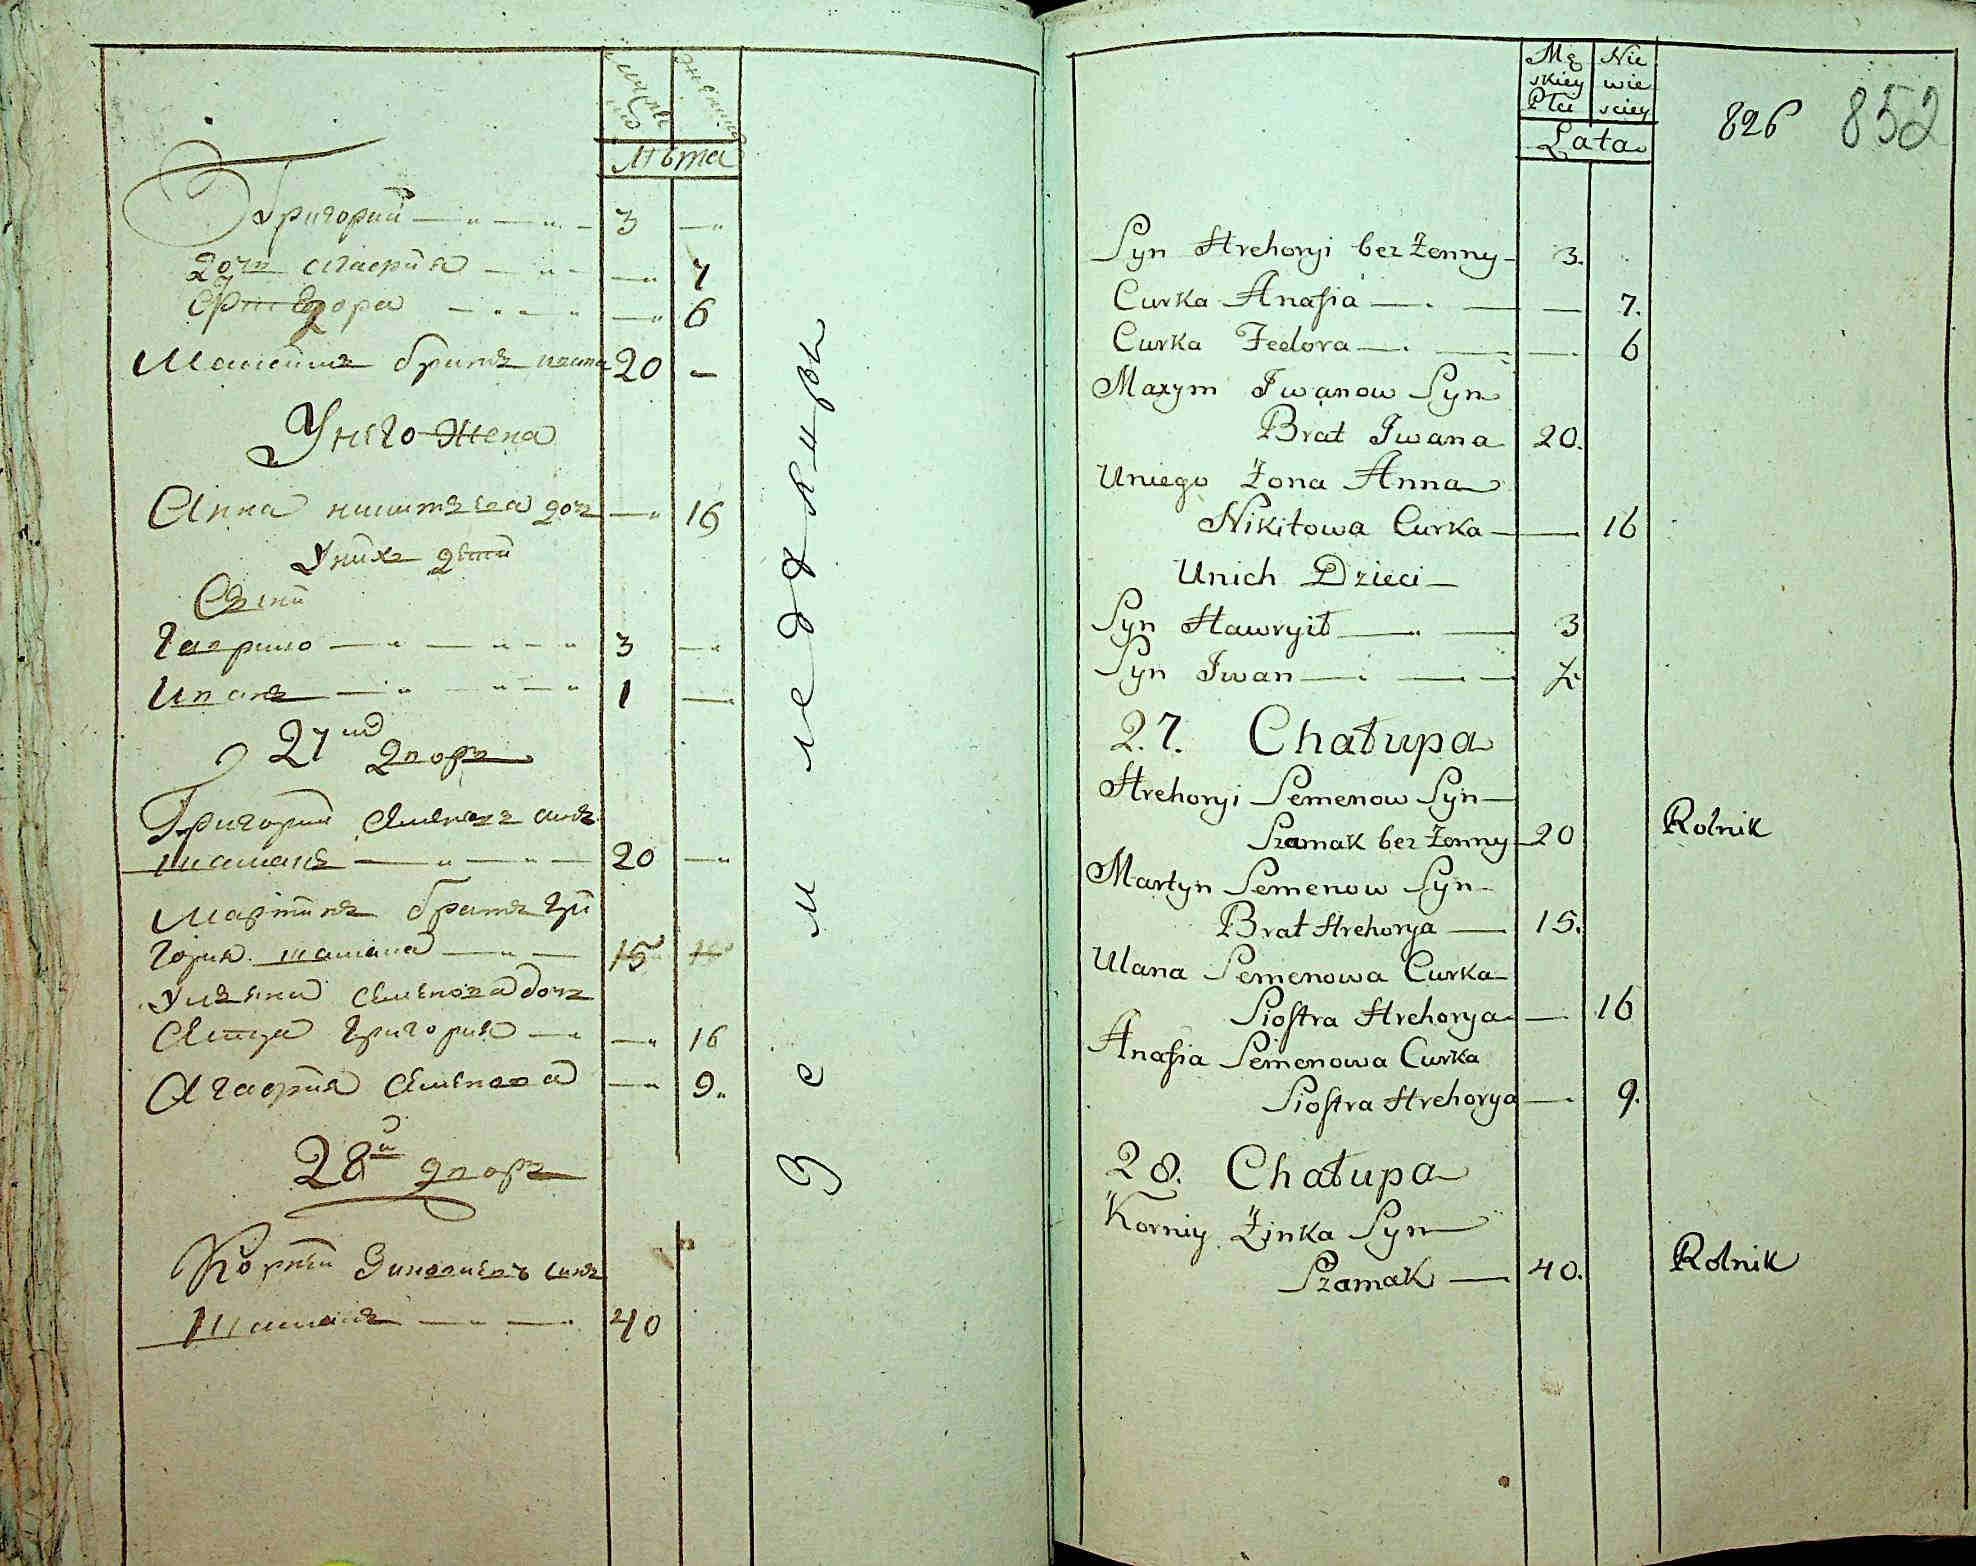 мужеска
женска
лѣта
Григорий 3
дочки Агафия 7
Федора 6
Максимъ братъ ивана 20
У него жена
Анна никитова доч 16
У них дети
Сыни
Гаврило 3
Иванъ 1
27й двор
Григорий Семенов сынъ
шамакъ 20
Мартинъ братъ Гри
гория шамака 15
Улияна Семенова дочъ
Сестра Григория 16
Агафия Семенова 9
28й двор
Корний Зиновиевъ сынъ
Шамакъ 40
земледѣлецъ
Mę Nie
skiey wie
Płci sciey
Lata
826 852
Syn Hrehoryi bez Żonny 3.
Curka Anasia 7.
Curka Fedora 6
Maxym Iwanow Syn
Brat Iwana 20.
Uniego Żona Anna
Nikitowa Curka 16
Unich Dzieci
Syn Hawryił 3
Syn Iwan
27. Chałupa
Hrehoryi Semenow Syn
Szamak bez Żonny 20 Rolnik
Martyn Semenow Syn
Brat Hrehorya 15.
Ulana Semenowa Curka
Siostra Hrehorya 16
Anasia Semenowa Curka
Siostra Hrehorya 9.
28. Chałupa
Korniy Żinka Syn
Szamak 40. Rolnik